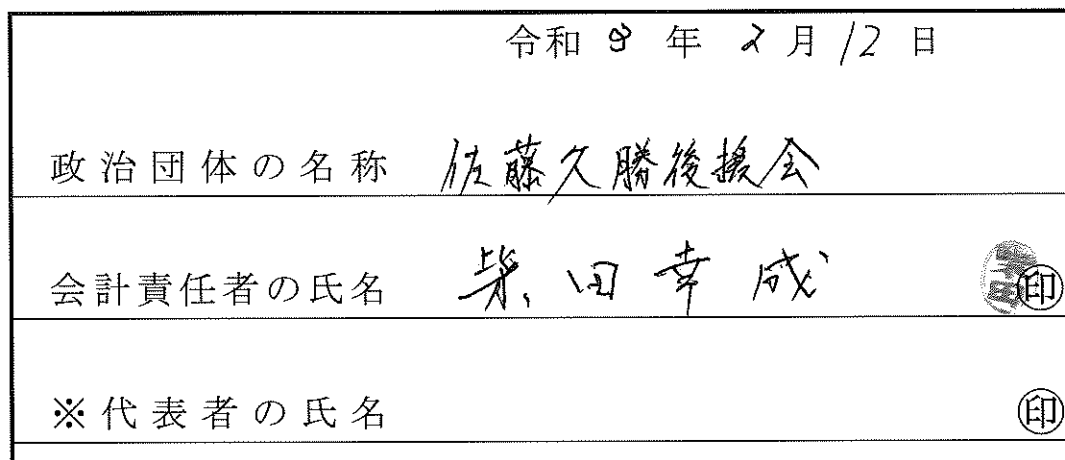 令和 年 2 月 12 日
政治団体の名称 佐藤久勝後援会
会計責任者の氏名 柴田幸成 柴田 ㊞
※代表者の氏名 ㊞